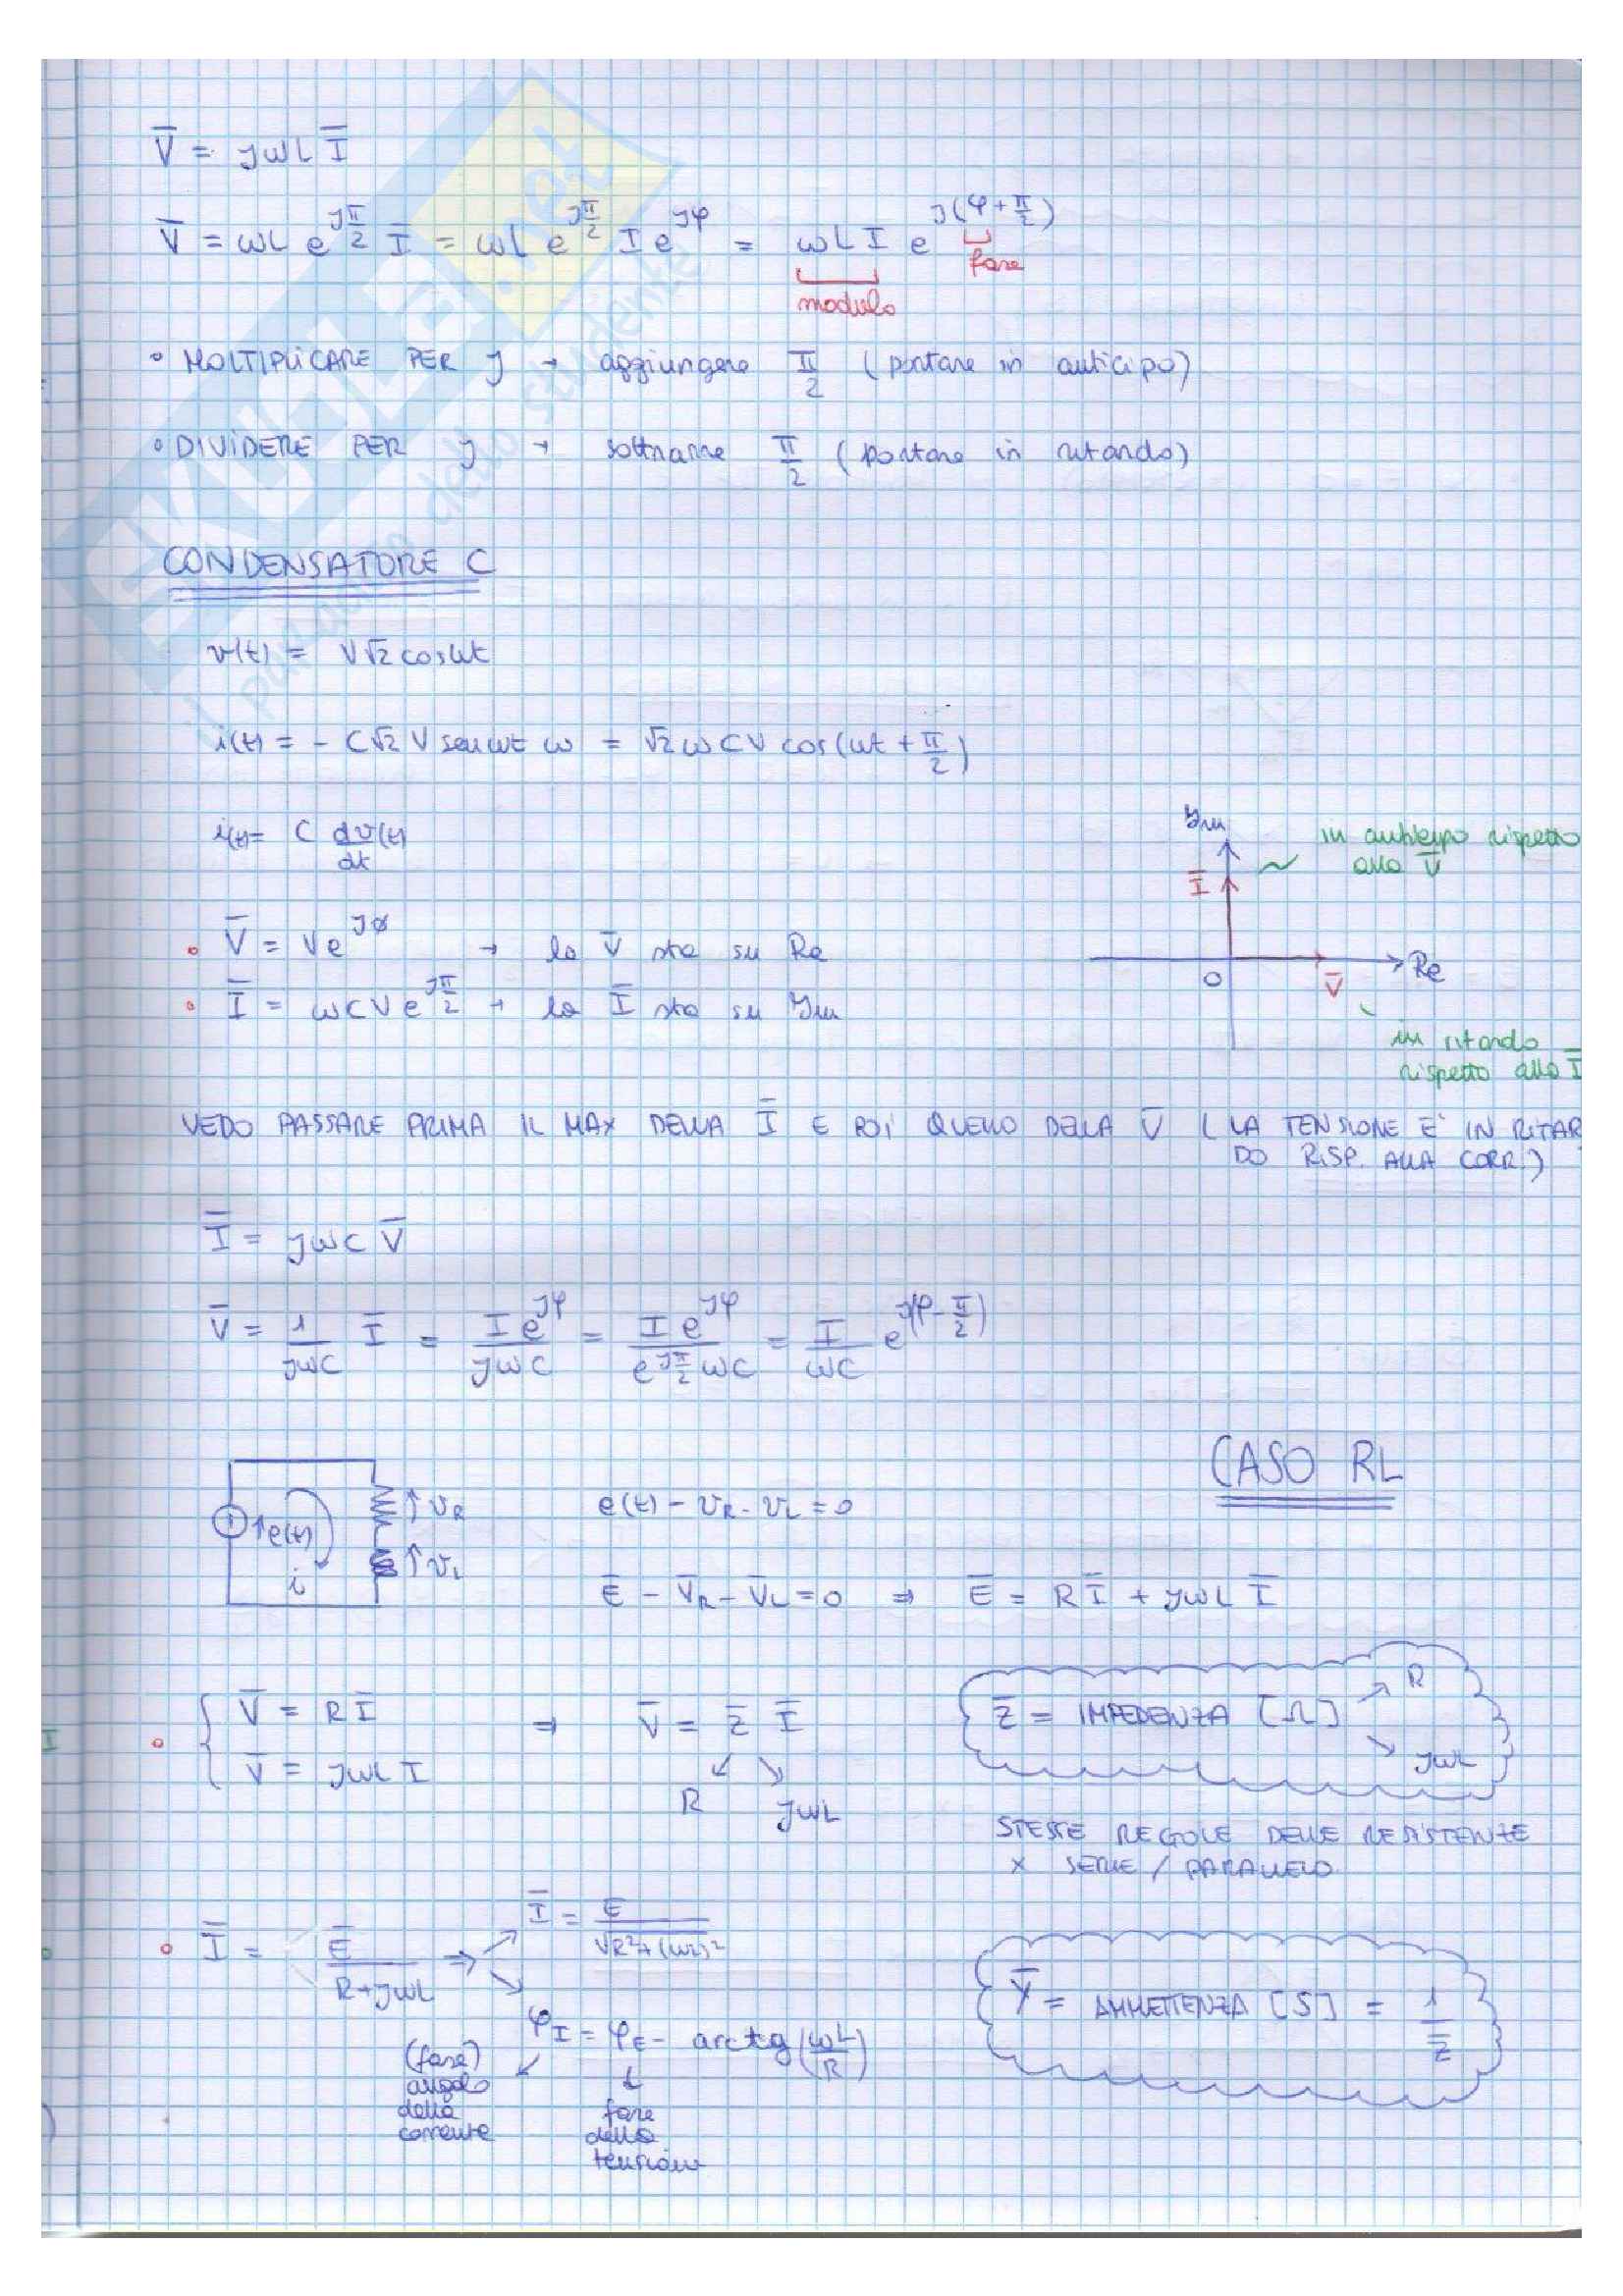 V̄ = jωL Ī
V̄ = ωL e^{jπ/2} Ī = ωL e^{jπ/2} I e^{jφ} = ωLI e^{j(φ+π/2)}
fase
modulo
• MOLTIPLICARE PER j → aggiungere π/2 (portare in anticipo)
• DIVIDERE PER j → sottrarre π/2 (portare in ritardo)
CONDENSATORE C
v(t) = V√2 cosωt
i(t) = - C√2 V senωt ω = √2 ωCV cos(ωt + π/2)
i(t) = C dv(t)/dt
Im
in anticipo rispetto
alla V̄
Ī
• V̄ = Ve^{j0} → la V̄ sta su Re
Re
0
V̄
• Ī = ωCV e^{jπ/2} → la Ī sta su Im
in ritardo
rispetto alla Ī
VEDO PASSARE PRIMA IL MAX DELLA Ī E POI QUELLO DELLA V̄ (LA TENSIONE E' IN RITAR
DO RISP. ALLA CORR.)
Ī = jωC V̄
V̄ = 1/jωC Ī = I e^{jφ}/jωC = I e^{jφ}/e^{jπ/2} ωC = I/ωC e^{j(φ-π/2)}
CASO RL
e(t) i vR vL
e(t) - vR - vL = 0
Ē - V̄R - V̄L = 0 ⇒ Ē = RĪ + jωL Ī
• { V̄ = RĪ
V̄ = jωL I
⇒ V̄ = Z̄ Ī
R jωL
Z̄ = IMPEDENZA [Ω] R jωL
STESSE REGOLE DELLE RESISTENZE
x SERIE / PARALLELO
• Ī = Ē/R+jωL ⇒ Ī = E/√R²+(ωL)²
φI = φE - arctg(ωL/R)
(fase)
angolo
della
corrente
fase
della
tensione
Ȳ = AMMETTENZA [S] = 1/Z̄
SKUOLA.net
il paradiso dello studente